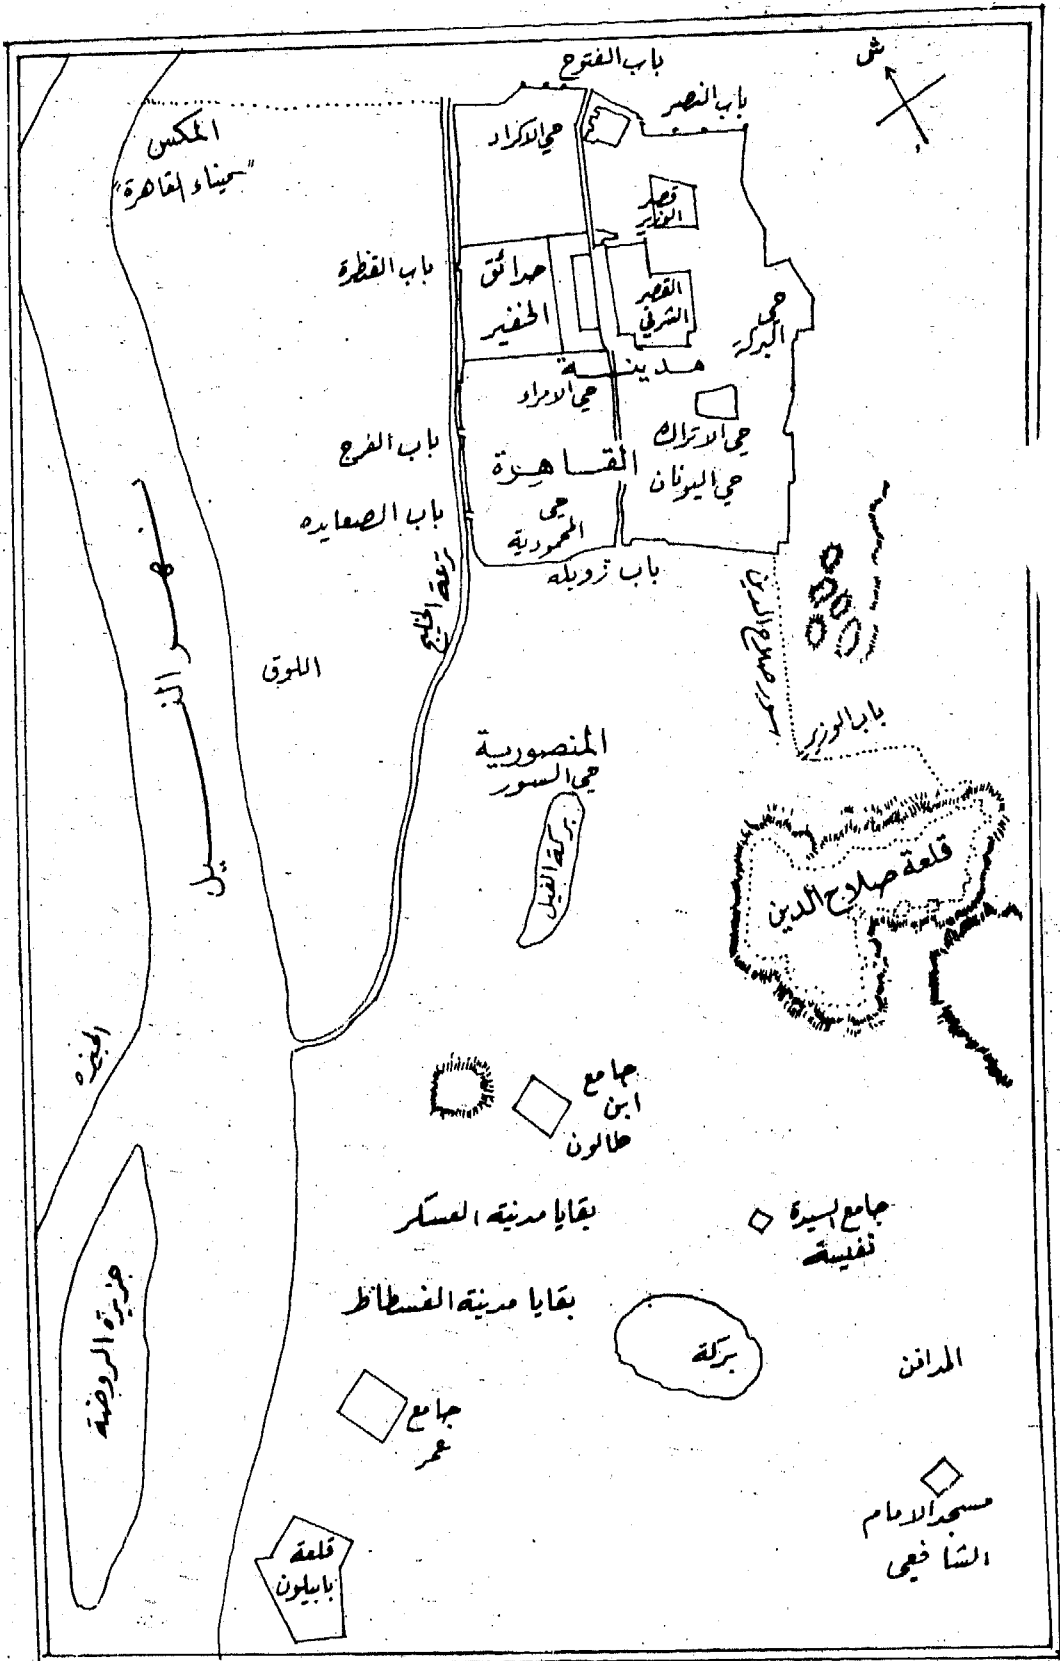 ش
باب الفتوح
باب النصر
المكس
"ميناء القاهرة"
حي الأكراد
قصر
الوزير
باب القنطرة
حدائق
الخفير
القصر
الشرقي
حي
البركة
مدينة
حي الامراء
باب الفرج
القاهرة
حي الاتراك
حي اليونان
باب الصعايده
حي
المحمودية
باب زويله
ترعة الخليج
سور صلاح الدين
نهر النيل
اللوق
باب الوزير
المنصورية
حي السور
بركة الفيل
قلعة صلاح الدين
الجيزه
جامع
ابن
طالون
بقايا مدينة العسكر
جامع السيدة
نفيسة
بقايا مدينة الفسطاط
جزيرة الروضة
بركة
المدافن
جامع
عمر
مسجد الامام
الشافعي
قلعة
بابيلون